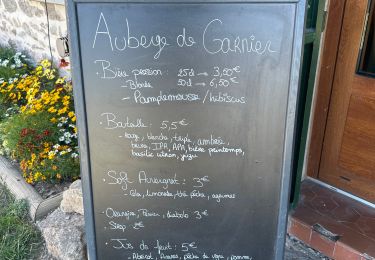 Auberge de Garnier
• Bière pression : 25d → 3,50€
- Blonde 50d → 6,50€
- Pamplemousse / hibiscus
Bouteille : 5,5€
- rouge, blanche, triple, ambrée,
brune, IPA, APA, bière printemps,
basilic citron, yuzu
• Soft Auvergnat : 3€
- Cola, limonade, thé pêche, agrumes
3€
• Sirop 2€
• Jus de fruit : 5€
- Abricot, Ananas, pêche de vigne, pomme,